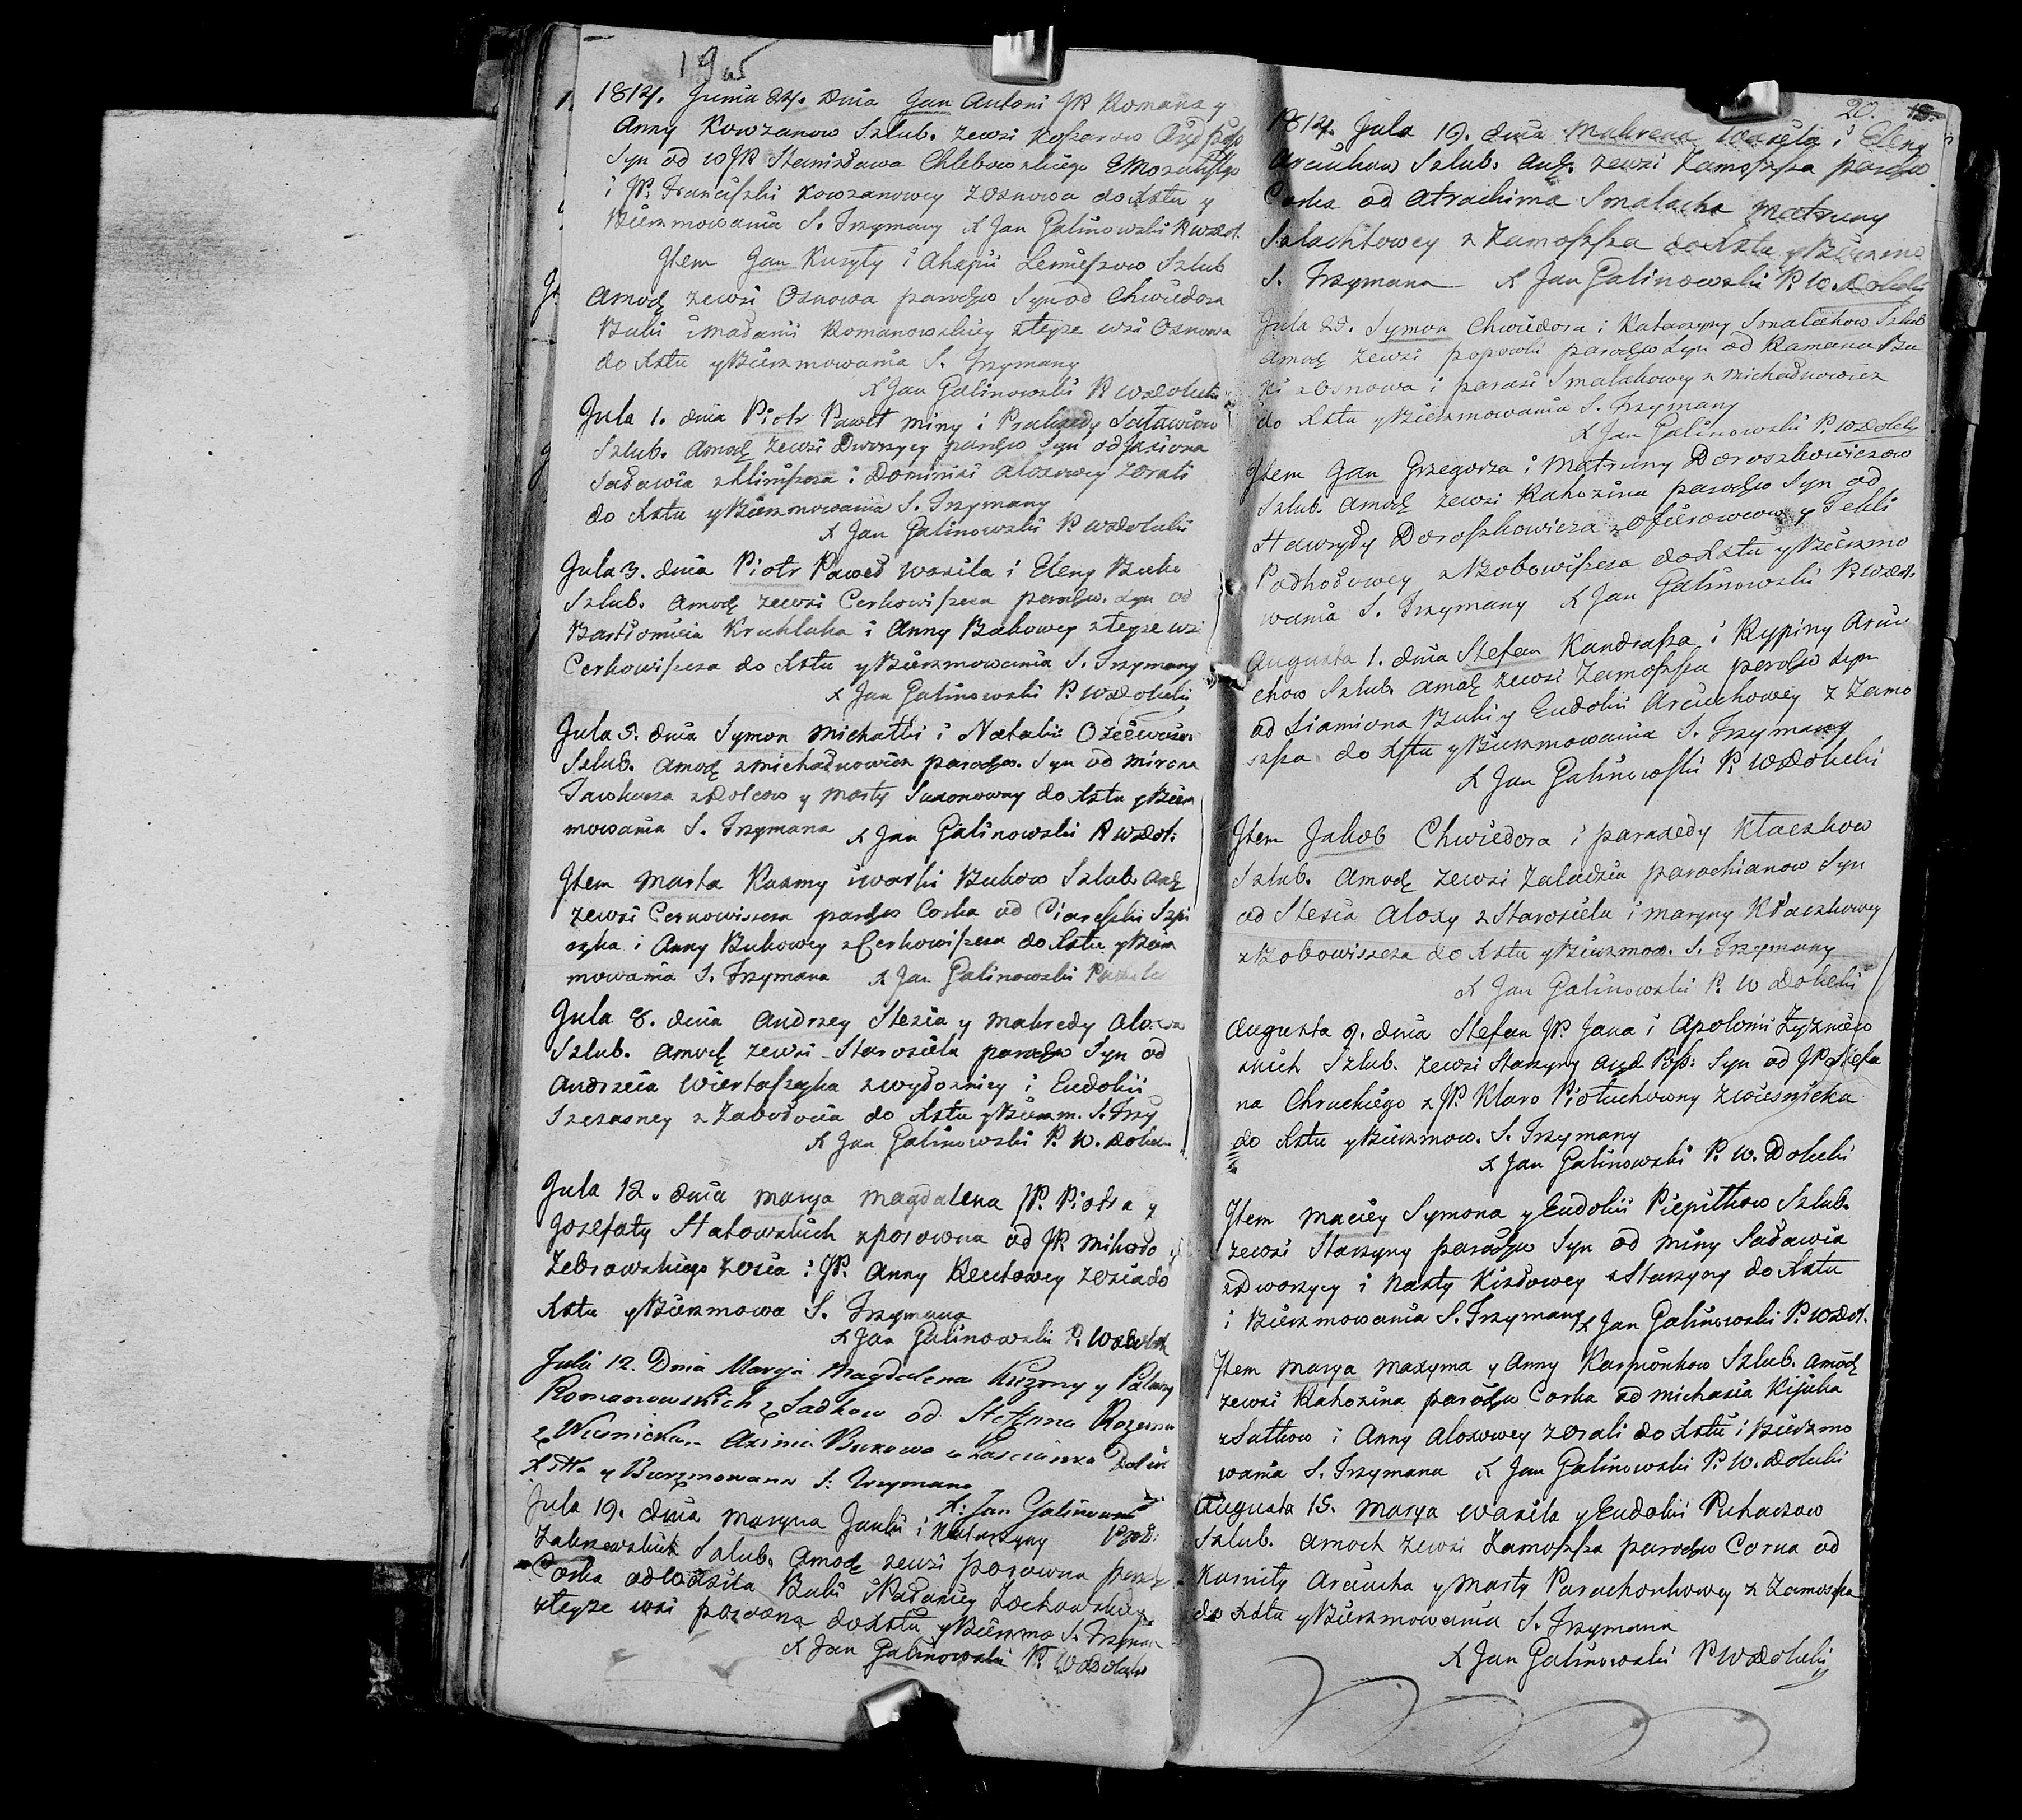 1814. Junia 24. dnia Jan Antoni JP. Romana y
Anny Kowzanow Szlub. zewsi
Syn od WJP. Stanisława Chlebowskiego
i JP. Franciszki Kowzanowey z Osnowa do Xstu y
Bierzmowania S. Trzymany X Jan Galinowski P. WDoł.
Jtem Jan Kuryły i Ahapii Lemieszow Szlub
Amodz zewsi Osnowa parochw Syn od Chwiedora
Buki i Madanii Romanowskiey zteyze wsi Osnowa
do Xstu y Bierzmowania S. Trzymany
X Jan Galinowski P. WDołuhi
Jula 1. dnia Piotr Paweł Miny i Praxedy Sadawiow
Szlub. Amodz zewsi Dworzycy parochw Syn od Jasiona
Sadawia z Kliniszcza i Dominiki Alozowey z Orali
do Xstu y Bierzmowania S. Trzymany
X Jan Galinowski P. WDołuhi
Jula 3. dnia Piotr Paweł Wasila i Eleny Buko
Szlub. Amodz zewsi Cerkowiszcza parochw. Syn od
Bartłomieia Kruhluka i Anny Bukowey zteyze wsi
Cerkowiszcza do Xstu y Bierzmowania S. Trzymany
X Jan Galinowski P. WDołuhi
Jula 5. dnia Symon Michałki i Natalii
Szlub. Amodz z Michadnowicz parochw. Syn od Mirona
z Dolcow y Marty do Xstu y Bierz
mowania S. Trzymana X Jan Galinowski P. WDoł:
Jtem Marta Kuzmy i Warki Bukow Szlub. Amdz
zewsi Cerkowiszcza parochw Corka od Szpi
czka i Anny Bukowey z Cerkowiszcza do Xstu y Bierz
mowania S. Trzymana X Jan Galinowski
Jula 8. dnia Andrzey Stesia y Makredy Aloza
Szlub. Amodz zewsi Starosiela parochw Syn od
Andrzeia z Wydoznicy i Eudokii
Szczasney z Zabołocia do Xstu y Bierzm. S. Trzy
X Jan Galinowski P. W. Dołuh
Jula 12. dnia Marya Magdalena JP. Piotra y
Jozefaty Hatowskich z Porowna od JP. Mikoło
Zebrowskiego z Osia i JP. Anny z Osia do
Xstu y Bierzmowa S. Trzymana
X Jan Galinowski P. WDołuh
Julii 12. Dnia Marya Magdalena y
Romanowskich z Sadkow od Steffana
z Wiesnicka Bukowa
Xsttu y Bierzmowana S: Trzymana
X: Jan Galinowski
Jula 19. dnia Maryna Janki i Katarzyny
Zakrzewskich Szlub. Amodz zewsi Porowna parch
Corka od Wasila Buki i Zochowskiey
zteyze wsi Porowna do Xstu y Bierzmo S. Trzyman
X Jan Galinowski P. WDołuhi
20.
1814. Jula 19. dnia Makrena Wasila i Eleny
Arciuchow Szlub. Amdz. zewsi Zamoszsza parochw.
Corka od Atrachima Smalacha Matruny
Szlachtowey z Zamoszsza do Xstu y Bierzmo
S. Trzymana X Jan Galinowski P. W. Dołuhi
Symon Chwiedora i Katarzyny Smalachow Szlub
Amodz zewsi Popowki parochw Syn od Romana Bu
ki z Osnowa i Parasi Smalahowey z Michadnowicz
do Xstu y Bierzmowania S. Trzymany
X Jan Galinowski P. WDołuhi
Jtem Jan Grzegorza i Matruny Doroszkowiczow
Szlub. Amodz zewsi Rahozina parochw Syn od
Hawryły Doroszkowicza y Tekli
z Bobowiszcza do Xstu y Bierzmo
wania S. Trzymany X Jan Galinowski P. WDoł.
Augusta 1. dnia Stefan Kandrasza i Kypiny Arciu
chow Szlub. Amodz zewsi Zamoszsza parochw Syn
od Siamiona Buki y Eudokii Arciuchowey z Zamo
szsza do Xstu y Bierzmowania S. Trzymany
X Jan Galinowski P. WDołuhi
Jtem Jakob Chwiedora i Paraxedy Kłaczkow
Szlub. Amodz zewsi Zaladzia parochianow Syn
od Stesia Alozy z Starosiela i Maryny Kłaczkowey
z Bobowiszcza do Xstu y Bierzmow. S. Trzymany
X Jan Galinowski P. W Dołuhi
Augusta 9. dnia Stefan JP. Jana i Apolonii Żyzniew
skich Szlub. zewsi Starzyny Syn od JP. Stefa
na Chruckiego z JP. Klaro z Wiesnicka
do Xstu y Bierzmow. S. Trzymany
X Jan Galinowski P. W. Dołuhi
Jtem Maciey Symona y Eudokii Piepitkow Szlub.
zewsi Starzyny parochw Syn od Miny Sadawia
z Dworzycy i Nasty Kizłowey z Starzyny do Xstu
i Bierzmowania S. Trzymany X Jan Galinowski P. WDoł.
Jtem Marya Maxyma y Anny Karpionkow Szlub. Amodz
zewsi Rahozina parochw Corka od Michasia Kijuka
z Sutkow i Anny Alozowey z Orali do Xstu i Bierzmo
wania S. Trzymana X Jan Galinowski P. W. Dołuhi
Augusta 15. Marya Wasila y Eudokii Puhaczow
Szlub. Amodz zewsi Zamoszsza parochw Corka od
Karnity Arciucha y Marty Parachonkowey z Zamoszsza
do Xstu y Bierzmowania S. Trzymana
X Jan Galinowski P WDołuhi